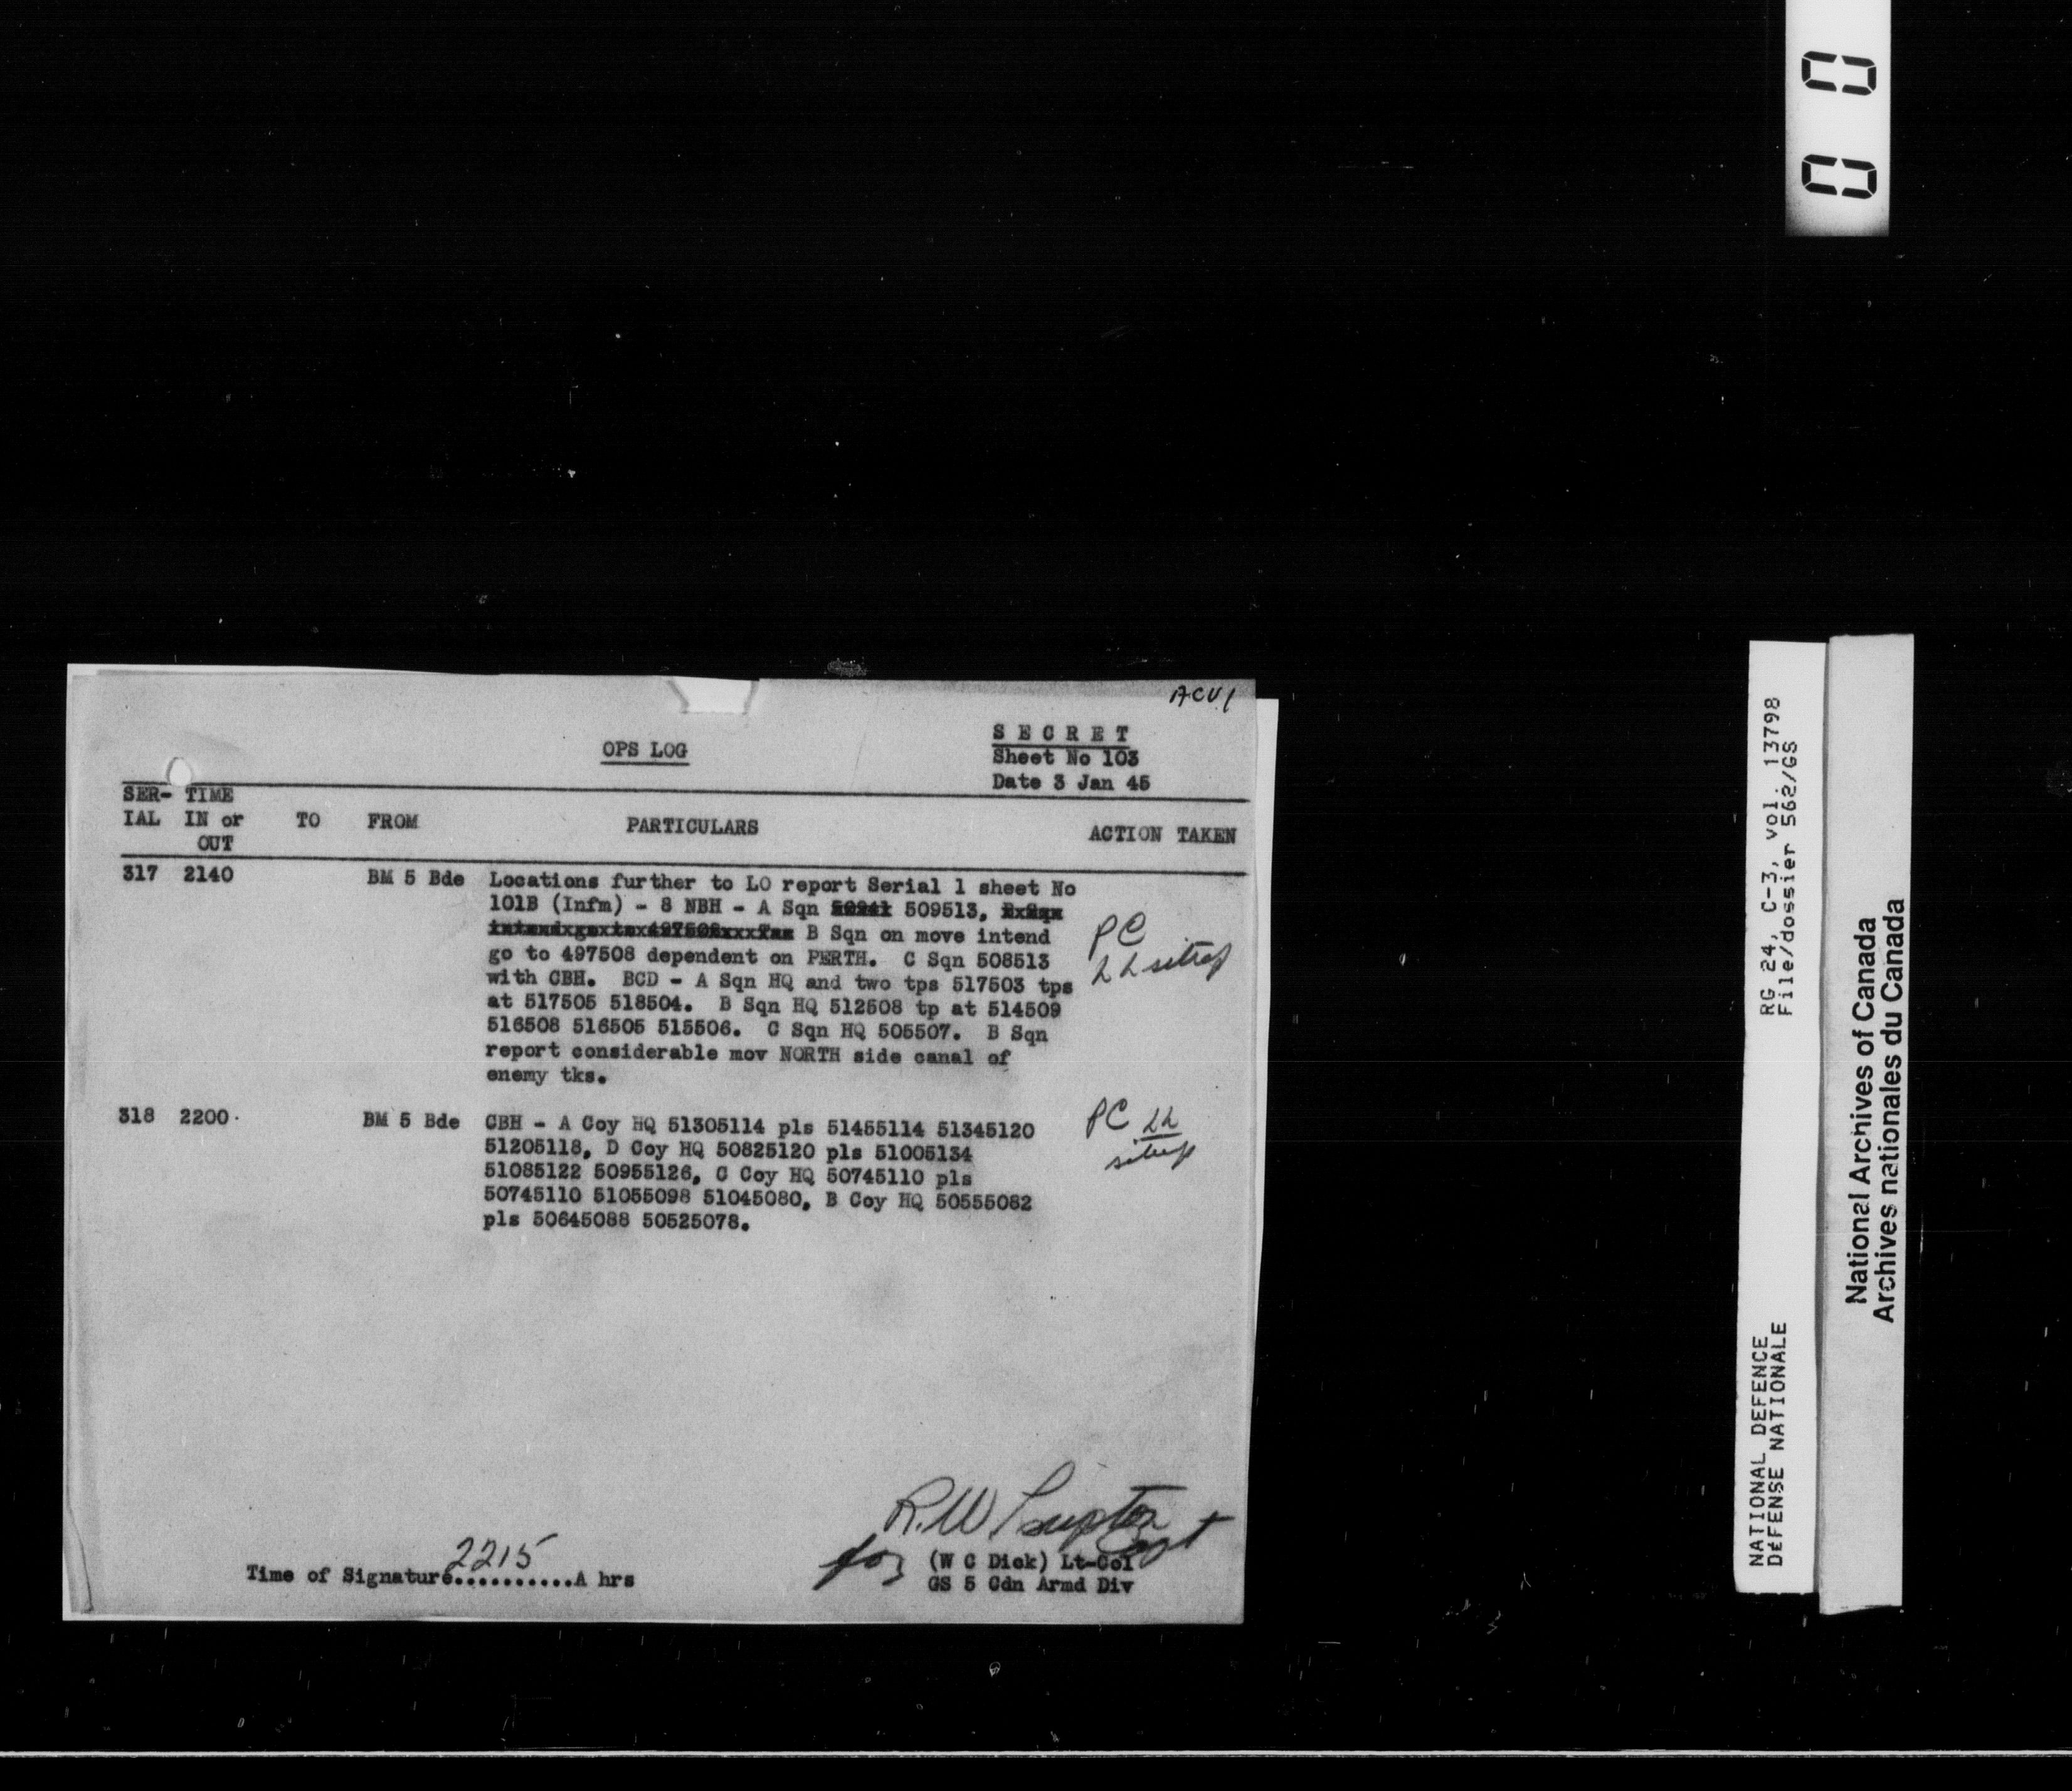 00
ACV1
OPS LOG
SECRET
Sheet No 103
Date 3 Jan 45
SER- TIME
IAL IN or TO FROM PARTICULARS ACTION TAKEN
OUT
317 2140 BM 5 Bde Locations further to LO report Serial 1 sheet No
101B (Infm) - 8 NBH - A Sqn 509513,
B Sqn on move intend
go to 497508 dependent on PERTH. C Sqn 508513
with CBH. BCD - A Sqn HQ and two tps 517503 tps
at 517505 518504. B Sqn HQ 512508 tp at 514509
516508 516505 515506. C Sqn HQ 505507. B Sqn
report considerable mov NORTH side canal of
enemy tks.
PC
22 sitrep
318 2200 BM 5 Bde CBH - A Coy HQ 51305114 pls 51455114 51345120
51205118, D Coy HQ 50825120 pls 51005134
51085122 50955126, C Coy HQ 50745110 pls
50745110 51055098 51045080, B Coy HQ 50555082
pls 50645088 50525078.
PC 22
sitrep
R.W. Capt
for (W C Dick) Lt-Col
GS 5 Cdn Armd Div
Time of Signature 2215 A hrs
RG 24, C-3, vol. 13798
File/dossier 562/GS
NATIONAL DEFENCE
DÉFENSE NATIONALE
National Archives of Canada
Archives nationales du Canada